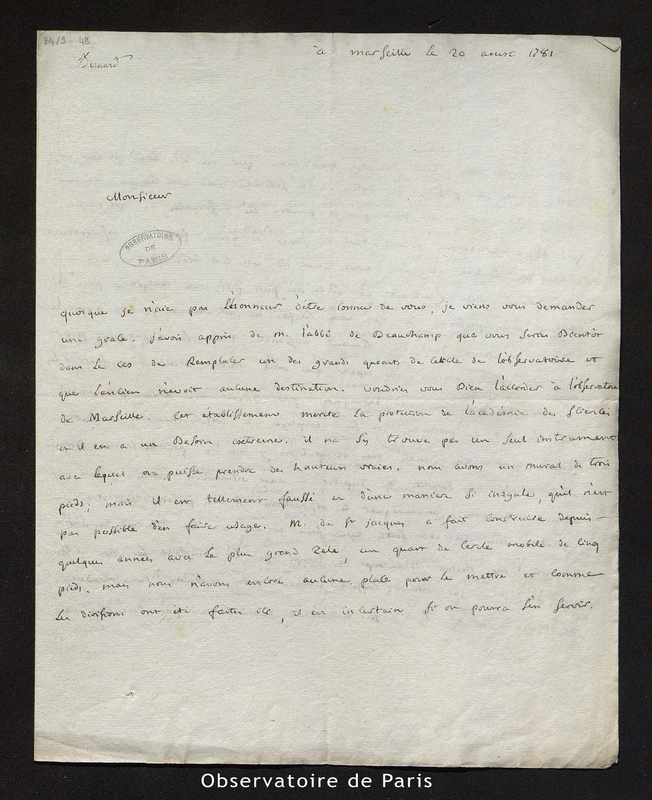 B4/9 - 48
Bernard
à marseille le 20 aoust 1781
Monsieur
OBSERVATOIRE
DE
PARIS
quoique je n'aie pas l'honneur d'être connu de vous, je viens vous demander
une grace. j'avois appris de m. l'abbé de Beauchamp que vous seriez Bientôt
dans le cas de Remplacer un des grands quarts de cercle de l'observatoire et
que l'ancien n'avoit aucune destination. voudriez vous Bien l'accorder à l'observatoire
de Marseille. Cet etablissement merite la protection de l'académie des sciences
et il en a un Besoin extreme. il ne s'y trouve pas un seul instrument
avec lequel on puisse prendre des hauteurs vraies. nous avons un mural de trois
pieds; mais il est tellement faussé et d'une maniere si inegale, qu'il n'est
pas possible d'en faire usage. M. de St jacques a fait construire depuis
quelques années avec le plus grand zele, un quart de Cercle mobile de cinq
pieds. mais nous n'avons encore aucune place pour le mettre et comme
les divisions ont eté faites ici, il est incertain si on pourra s'en servir.
Observatoire de Paris